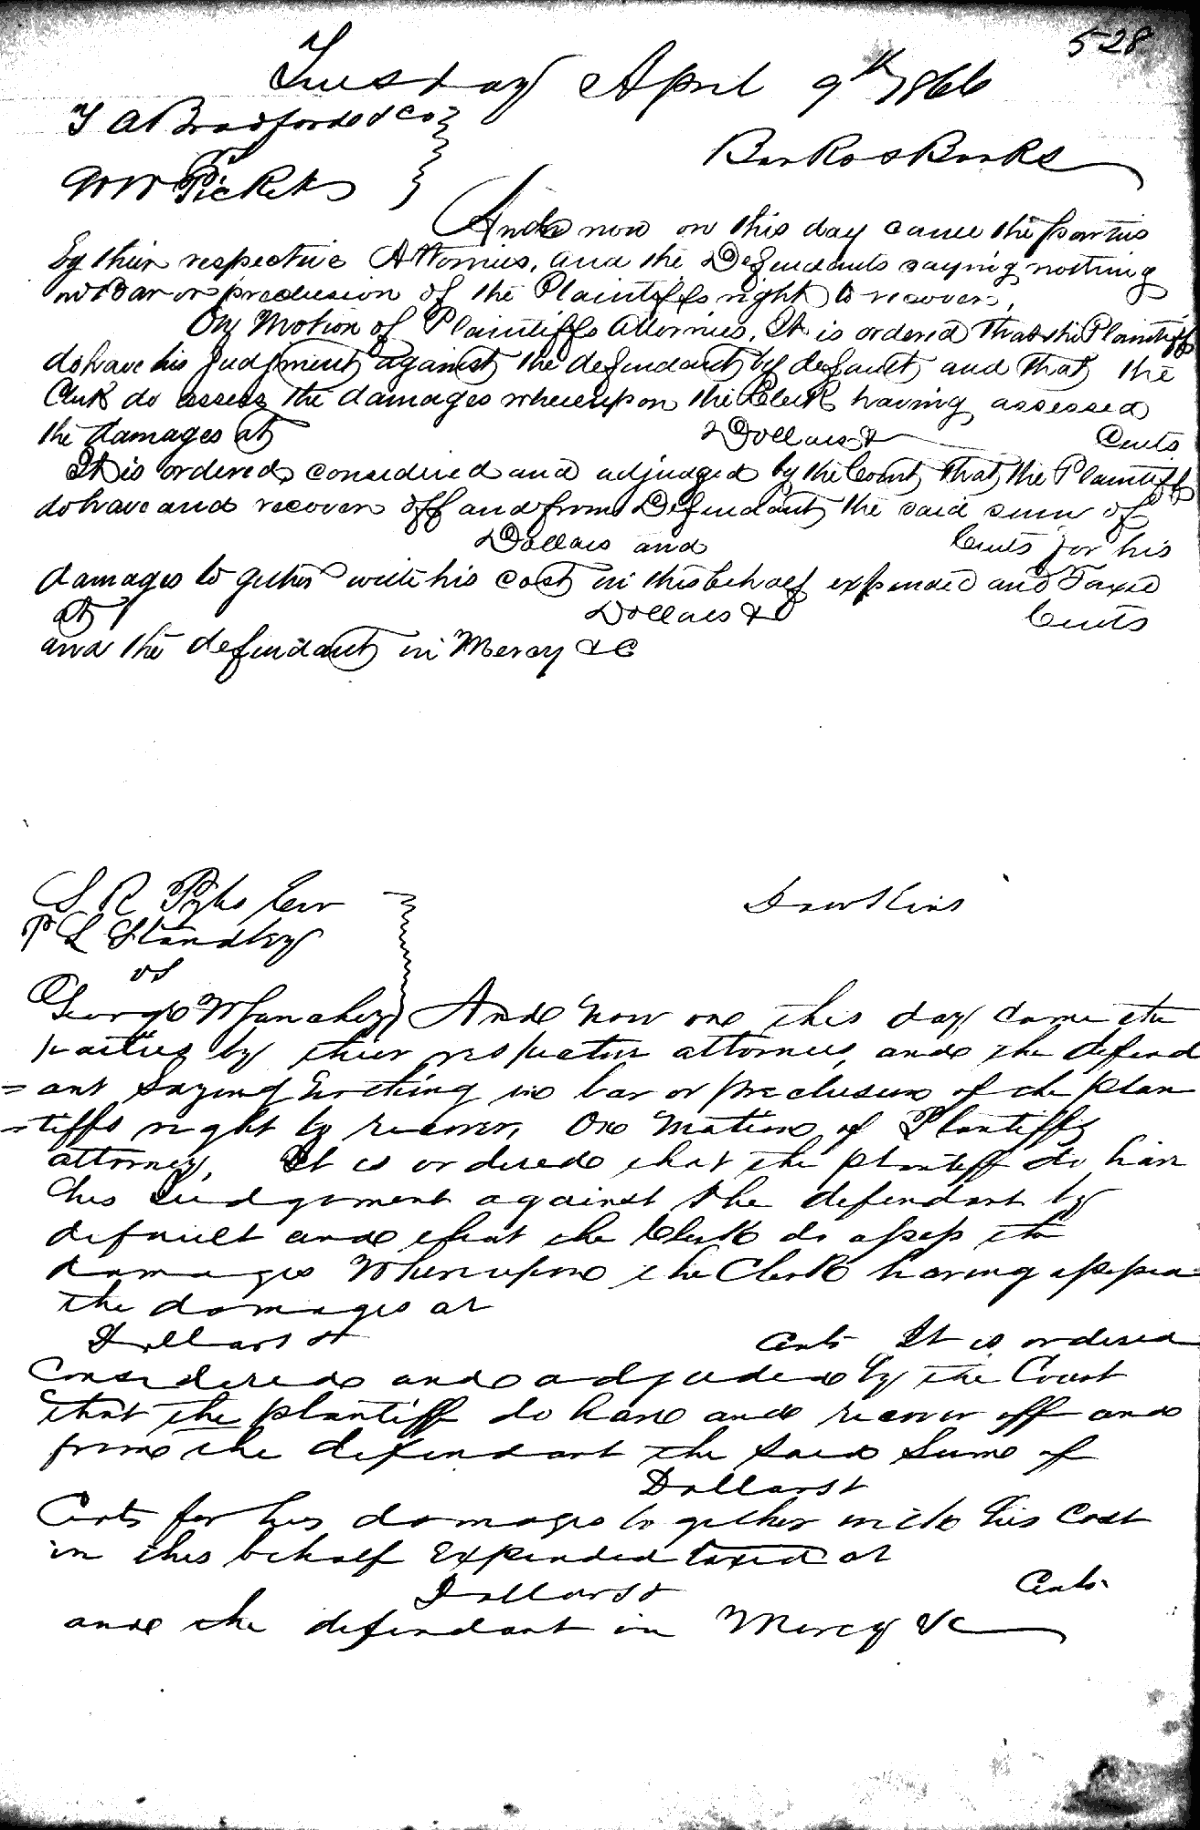 528
Tuesday April 9th 1866
T A Bradford & Co
vs
W W Pickets
Banks & Banks
And now on this day came the parties
by their respective Attornies, and the Defendants saying nothing
in Bar or preclusion of the Plaintiffs right to recover,
On Motion of Plaintiffs Attornies, It is ordered that the Plaintiff
do have his Judgment against the defendant by default and that the
Clerk do assess the damages whereupon the Clerk having assessed
the damages at Dollars & Cents
It is ordered, considered and adjudged by the Court that the Plaintiffs
do have and recover off and from Defendant the said sum of
Dollars and Cents for his
damages together with his cost in this behalf expended and Taxed
at Dollars & Cents
and the defendant in Mercy &C
S R
P L Standley
vs
George
Dawkins
And now one this day came the
parties by their respective attornies, and the defend
=ant Saying Nothing in bar or preclusion of the plan
=tiffs right to recover, One Motion of Plantiffs
attorney, It is ordered that the plantiff do have
his Judgement against the defendant by
default and that the Clerk do assess the
damages Whereupon the Clerk having assessed
the damages at
Dollars & Cents It is ordered
Considered and adjudged by the Court
that the plantiff do have and recover off and
from the defendant the said Sum of
Dollars &
Cents for his damages together with his Cost
in this behalf Expended taxed at
Dollars & Cents
and the defendant in Mercy &C